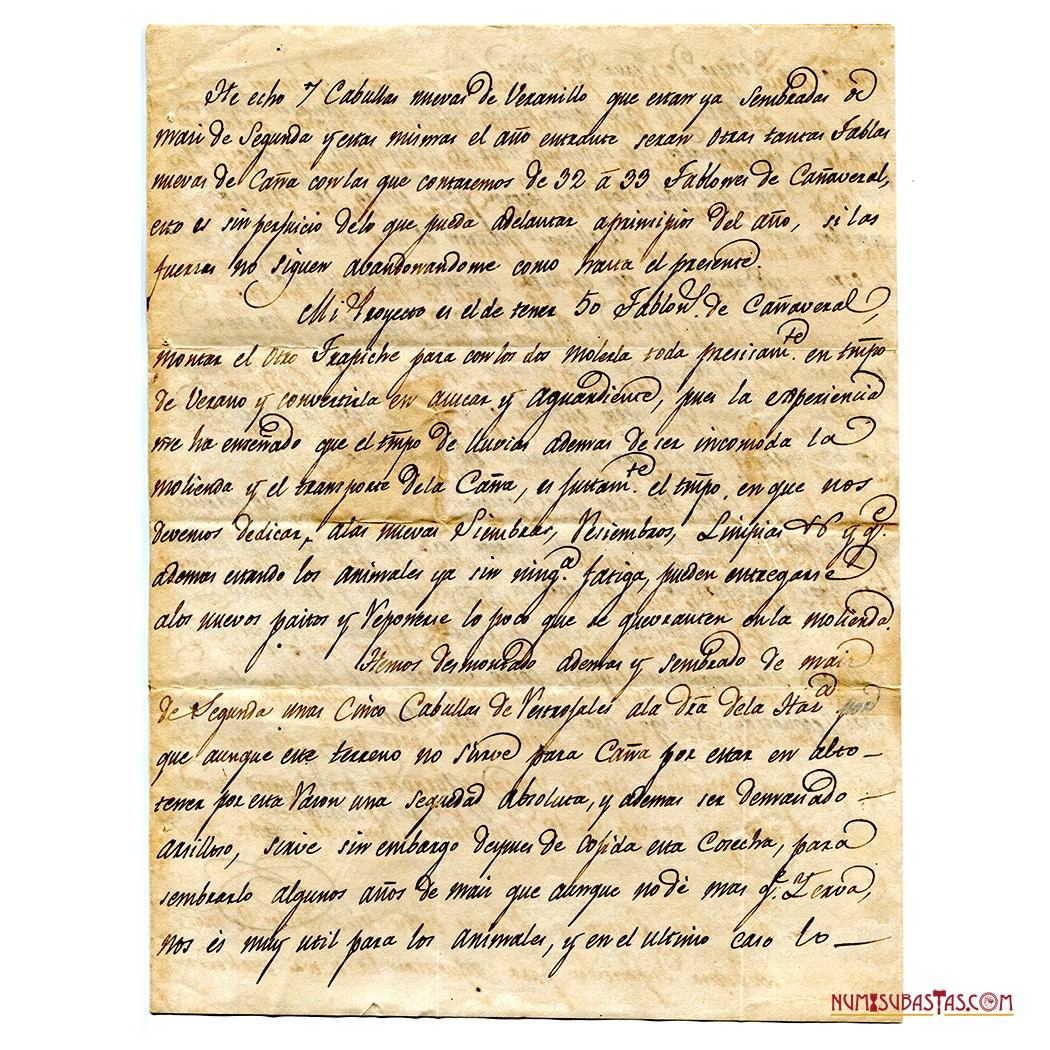 He echo 7 Cabullas nuevas de Veranillo que estan ya sembradas de
mais de Segunda y estas mismas el año entrante seran otras tantas Tablas
nuevas de Caña con las que contaremos de 32 á 33 Tablones de Cañaveral,
esto es sin perjuicio delo que pueda adelantar aprinsipios del año, si las
fuerzas no siguen abandonandome como hasta el presente.
Mi Proyecto es el de tener 50 Tablons. de Cañaveral,
montar el otro Trapiche para con los dos molerla toda presisamte. en tmpo
de Verano y convertirla en asucar y aguardiente, pues la experiencia
me ha enseñado que el tmpo de lluvias ademas de ser incomoda la
molienda y el transporte dela Caña, es justamte. el tmpo, en que nos
devemos dedicar, alas nuevas Siembras, Resiembros, Limpias &c y qe.
ademas estando los animales ya sin ninga. fatiga, pueden entregarse
alos nuevos pastos y Reponerse lo poco que se quevranten en la molienda.
Hemos desmontado ademas y sembrado de mais
de Segunda unas Cinco Cabullas de Rastrojales ala dra dela Hasda. por
que aunque este terreno no sirve para Caña por estar en alto –
tener por esta Rason una sequedad absoluta, y ademas ser demasiado –
arsilloso, sirve sin embargo despues de cojida esta Cosecha, para
sembrarlo algunos años de mais que aunque no dé mas qe. Yerva,
nos és muy util para los animales, y en el ultimo caso lo –
NUMISUBASTAS.COM